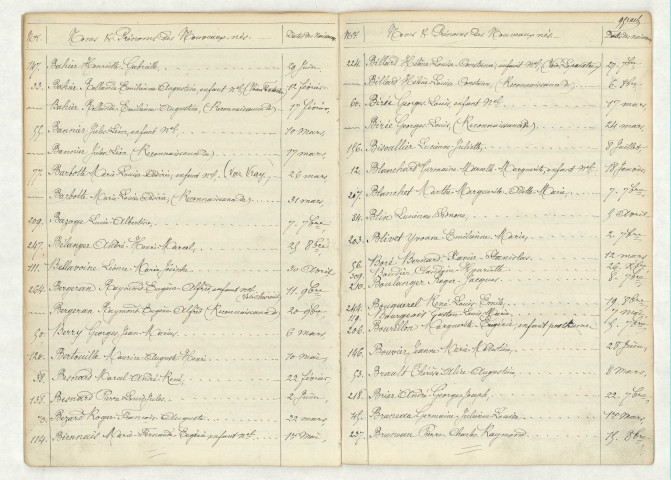 Nos. Noms & Prénoms des Nouveaux-nés. Dates des Naissances
147. Bahier Henriette Gabrielle 29 Juin
33. Bahier Rolland Emilienne Augustin, enfant Nel. 12 février
— Bahier Rolland Emilienne Augustin (Reconnaissance de) 17 février,
55. Bannier Jules Léon, enfant Nel. 10 mars,
— Bannier Jules Léon (Reconnaissance de) 17 mars,
77. Barbotte Marie Louise, enfant nel. (Voir Vray) 26 mars
— Barbotte Marie Louise (Reconnaissance de) 31 mars,
209. Bazoge Louis Albertine, 7. 7bre,
247. Bélanger André Henri Marcel, 25 8bre,
111. Bellavoine Léonie Marie 30 Avril
264. Bergeran Raymond Eugène Alfred enfant nel. 11. 9bre
— Bergeran Raymond Eugène Alfred (Reconnaissance de) 20 9bre,
50. Berry Georges Jean Marie 6 mars,
120. Maurice August Henri 10 mai,
38. Besnard Marcel André René, 22 février
138. Besnard Pierre Louis Jules 2 Juin,
70. Bezard Roger François Auguste 22 mars,
114. Marie Fernande Eugénie enfant nel. 1er Mai,
Nos. Noms & Prénoms des Nouveaux-nés. Dates des Naissances
224. Billard Hélène Louise Constance, enfant Nel. 27. 7bre
— Billard Hélène Louise Constance (Reconnaissance de) 6 8bre
60. Birée Georges Louis, enfant Nel. 17 mars
— Birée Georges Louis, (Reconnaissance de) 24 mars,
156. Lucienne Juliette, 8 Juillet,
12. Blanchard Germaine Marcelle Marguerite, enfant nel. 18 Janvier,
207. Blanchet Marthe Marguerite Odette Marie, 7. 7bre,
84. Blin Lucienne 5 Avril
203. Blivet Yvonne Emilienne Marie, 2. 7bre,
56. Boré Bernard Xavier Stanislas 12 mars
309. Bondin Henriette 26 Xbre
210. Boulanger Roger Jacques. 8. 7bre,
244. Bouquerel René Louis Emile, 19 8bre,
119. Bourgeois Gaston Louis Marie 7 mai,
206. Marguerite Eugénie, enfant posthume 5. 7bre,
146. Bouvier Jeanne Marie 28 Juin,
53. Brault Alice Augustine, 8 mars,
218. Brier André Georges Joseph, 22 7bre,
45. Bruneau Germaine Juliette Louise 1er mars,
237. Bruneau Pierre Charles Raymond 15. 8bre,